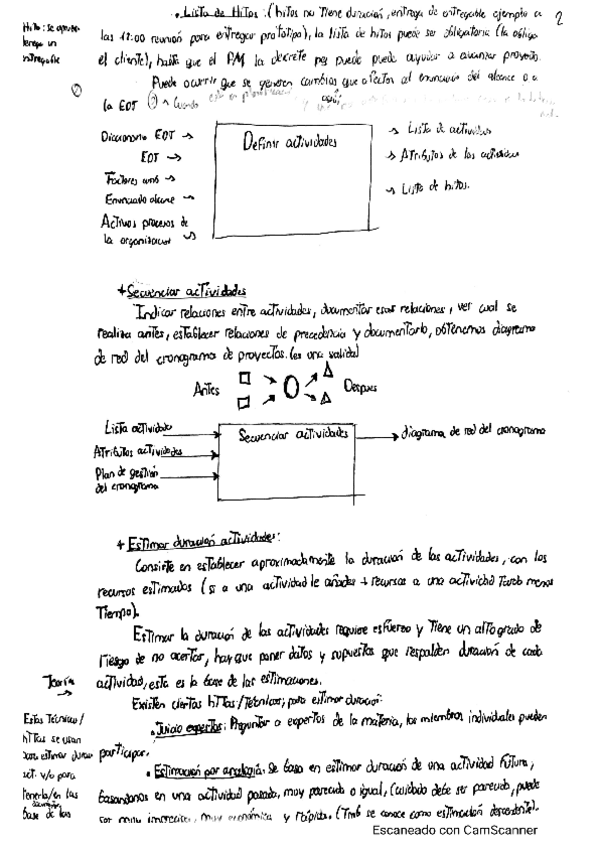 2
. Lista de Hitos : (hitos no tiene duración, entrega de entregable ejemplo a
las 12:00 reunión para entregar prototipo), la lista de hitos puede ser obligatoria (la obliga
el cliente), hasta que el PM la decrete puede puede ayudar a avanzar proyecto.
Puede ocurrir que se generen cambios que afectan al enunciado del alcance o a
la EDT
cuando
Hito: se
tenga un
entregable
Definir actividades
Diccionario EDT →
EDT →
Factores amb →
Enunciado alcance →
Activos procesos de
la organización →
→ Lista de actividades
→ Atributos de las actividades
→ Lista de hitos.
+ Secuenciar actividades
Indicar relaciones entre actividades, documentar esas relaciones, ver cual se
realiza antes, establecer relaciones de precedencia y documentarlo, obtenemos diagrama
de red del cronograma de proyectos. (es una salida)
Antes
Despues
Lista actividades
Atributos actividades
Plan de gestión
del cronograma
Secuenciar actividades
diagrama de red del cronograma
+ Estimar duración actividades:
Consiste en establecer aproximadamente la duración de las actividades, con los
recursos estimados (si a una actividad le añades + recursos a una actividad tarda menos
tiempo).
Estimar la duración de las actividades requiere esfuerzo y tiene un alto grado de
riesgo de no acertar, hay que poner datos y supuestos que respalden duración de cada
Teoría →
actividad, esta es la base de las estimaciones.
Existen ciertas httas/técnicas; para estimar duración:
. Juicio expertos: Preguntar a expertos de la materia, los miembros individuales pueden
participar.
Estas técnicas/
httas se usan
para estimar durac
act. y/o para
tenerla/en las
base de las
. Estimación por analogía: Se basa en estimar duración de una actividad futura,
basandonos en una actividad pasada, muy parecido o igual, (cuidado debe ser parecido, puede
ser muy impreciso, muy económica y rápida. (Tmb se conoce como estimación descendente).
Escaneado con CamScanner